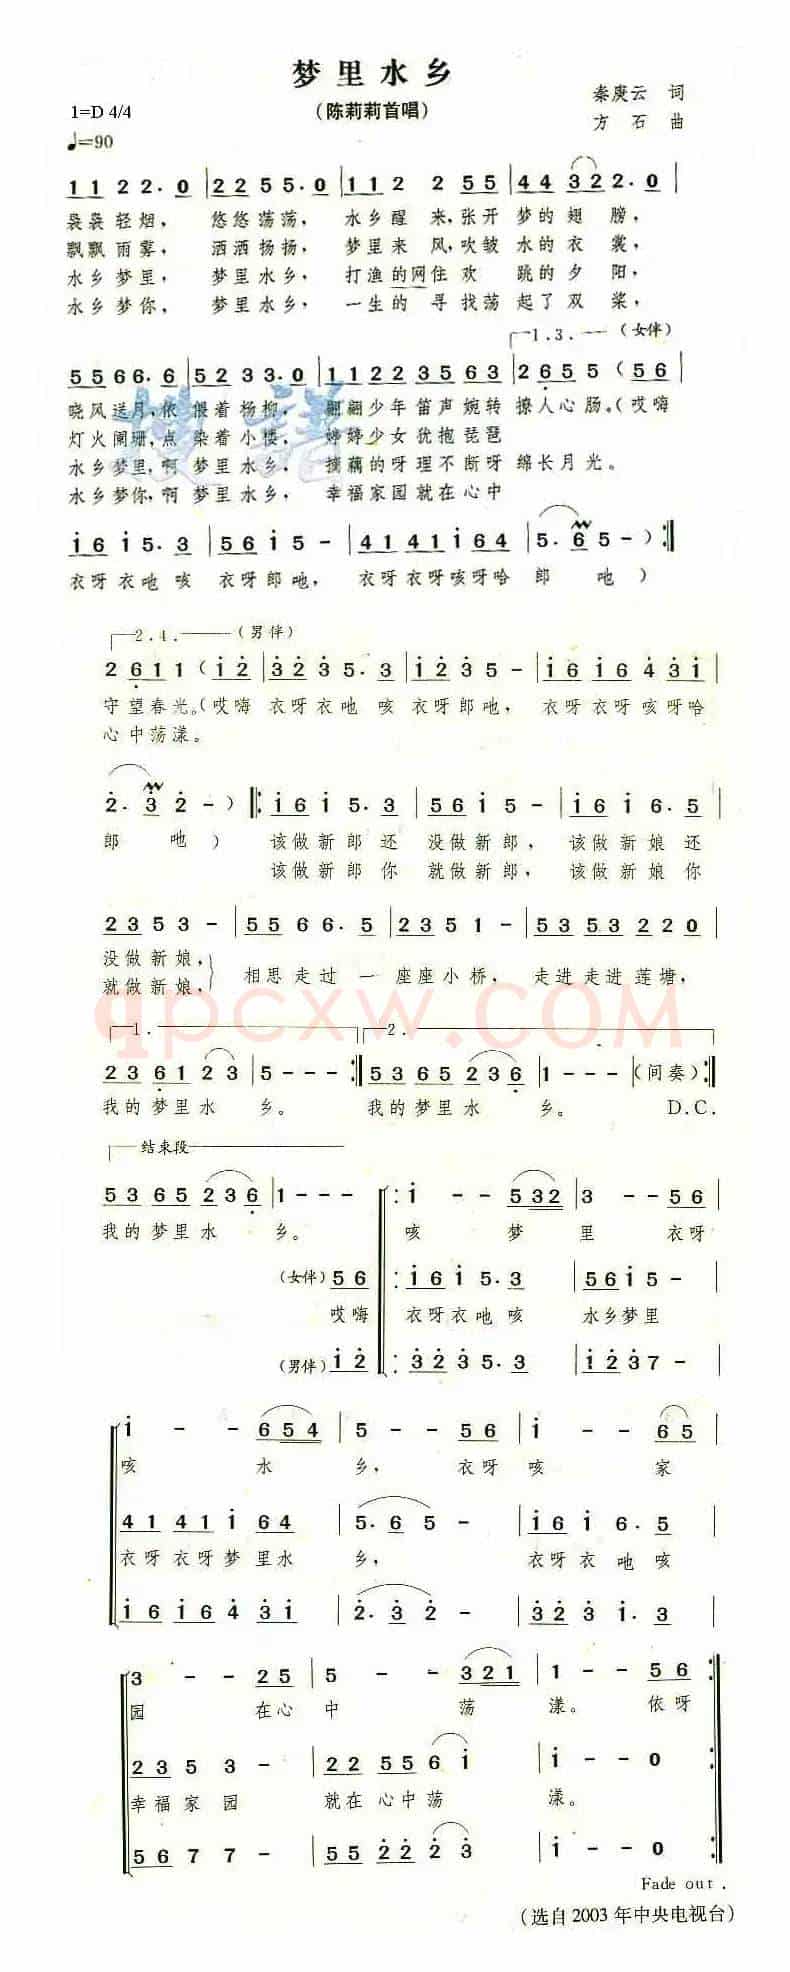 梦里水乡
1=D 4/4
(陈莉莉首唱)
秦庚云 词
♩=90
方石 曲
1 1 2 2. 0 | 2 2 5 5. 0 | 1 1 2 2 5 5 | 4 4 3 2 2. 0 |
袅袅轻烟, 悠悠荡荡, 水乡醒来,张开梦的翅膀,
飘飘雨雾, 洒洒扬扬, 梦里来风,吹皱水的衣裳,
水乡梦里, 梦里水乡, 打渔的网住欢跳的夕阳,
水乡梦你, 梦里水乡, 一生的寻找荡起了双桨,
1.3. (女伴)
5 5 6 6. 6 | 5 2 3 3. 0 | 1 1 2 2 3 5 6 3 | 2 6 5 5 ( 5 6 |
晓风送月,依偎着杨柳, 翩翩少年笛声婉转撩人心肠。(哎嗨
灯火阑珊,点染着小楼, 婷婷少女犹抱琵琶
水乡梦里,啊梦里水乡, 摘藕的呀理不断呀绵长月光。
水乡梦你,啊梦里水乡, 幸福家园就在心中
i 6 i 5. 3 | 5 6 i 5 - | 4 1 4 1 i 6 4 | 5. 6 5 - ) :|
衣呀衣吔咳 衣呀郎吔, 衣呀衣呀咳呀哈 郎 吔)
2.4. (男伴)
2 6 1 1 ( i 2 | 3 2 3 5. 3 | i 2 3 5 - | i 6 i 6 4 3 i |
守望春光。(哎嗨 衣呀衣吔咳 衣呀郎吔, 衣呀衣呀咳呀哈
心中荡漾。
2. 3 2 - ) |: i 6 i 5. 3 | 5 6 i 5 - | i 6 i 6. 5 |
郎 吔) 该做新郎还 没做新郎, 该做新娘还
该做新郎你 就做新郎, 该做新娘你
2 3 5 3 - | 5 5 6 6. 5 | 2 3 5 1 - | 5 3 5 3 2 2 0 |
没做新娘,
就做新娘,
相思走过一 座座小桥, 走进走进莲塘,
1. 2.
2 3 6 1 2 3 | 5 - - - :| 5 3 6 5 2 3 6 | 1 - - - (间奏) :|
我的梦里水 乡。 我的梦里水 乡。 D.C.
结束段
5 3 6 5 2 3 6 | 1 - - - |: i - - 5 3 2 | 3 - - 5 6 |
我的梦里水 乡。 咳 梦 里 衣呀
(女伴) 5 6 |: i 6 i 5. 3 | 5 6 i 5 - |
哎嗨 衣呀衣吔咳 水乡梦里
(男伴) i 2 |: 3 2 3 5. 3 | i 2 3 7 - |
i - - 6 5 4 | 5 - - 5 6 | i - - 6 5 |
咳 水 乡, 衣呀 咳 家
4 1 4 1 i 6 4 | 5. 6 5 - | i 6 i 6. 5 |
衣呀衣呀梦里水 乡, 衣呀衣吔咳
i 6 i 6 4 3 i | 2. 3 2 - | 3 2 3 i. 3 |
3 - - 2 5 | 5 - - 3 2 1 | 1 - - 5 6 :|
园 在心 中 荡 漾。 依呀
2 3 5 3 - | 2 2 5 5 6 i | i - - 0 :|
幸福家园 就在心中荡 漾。
5 6 7 7 - | 5 5 2 2 2 3 | i - - 0 :|
Fade out.
(选自2003年中央电视台)
qpcxw.COM
搜谱